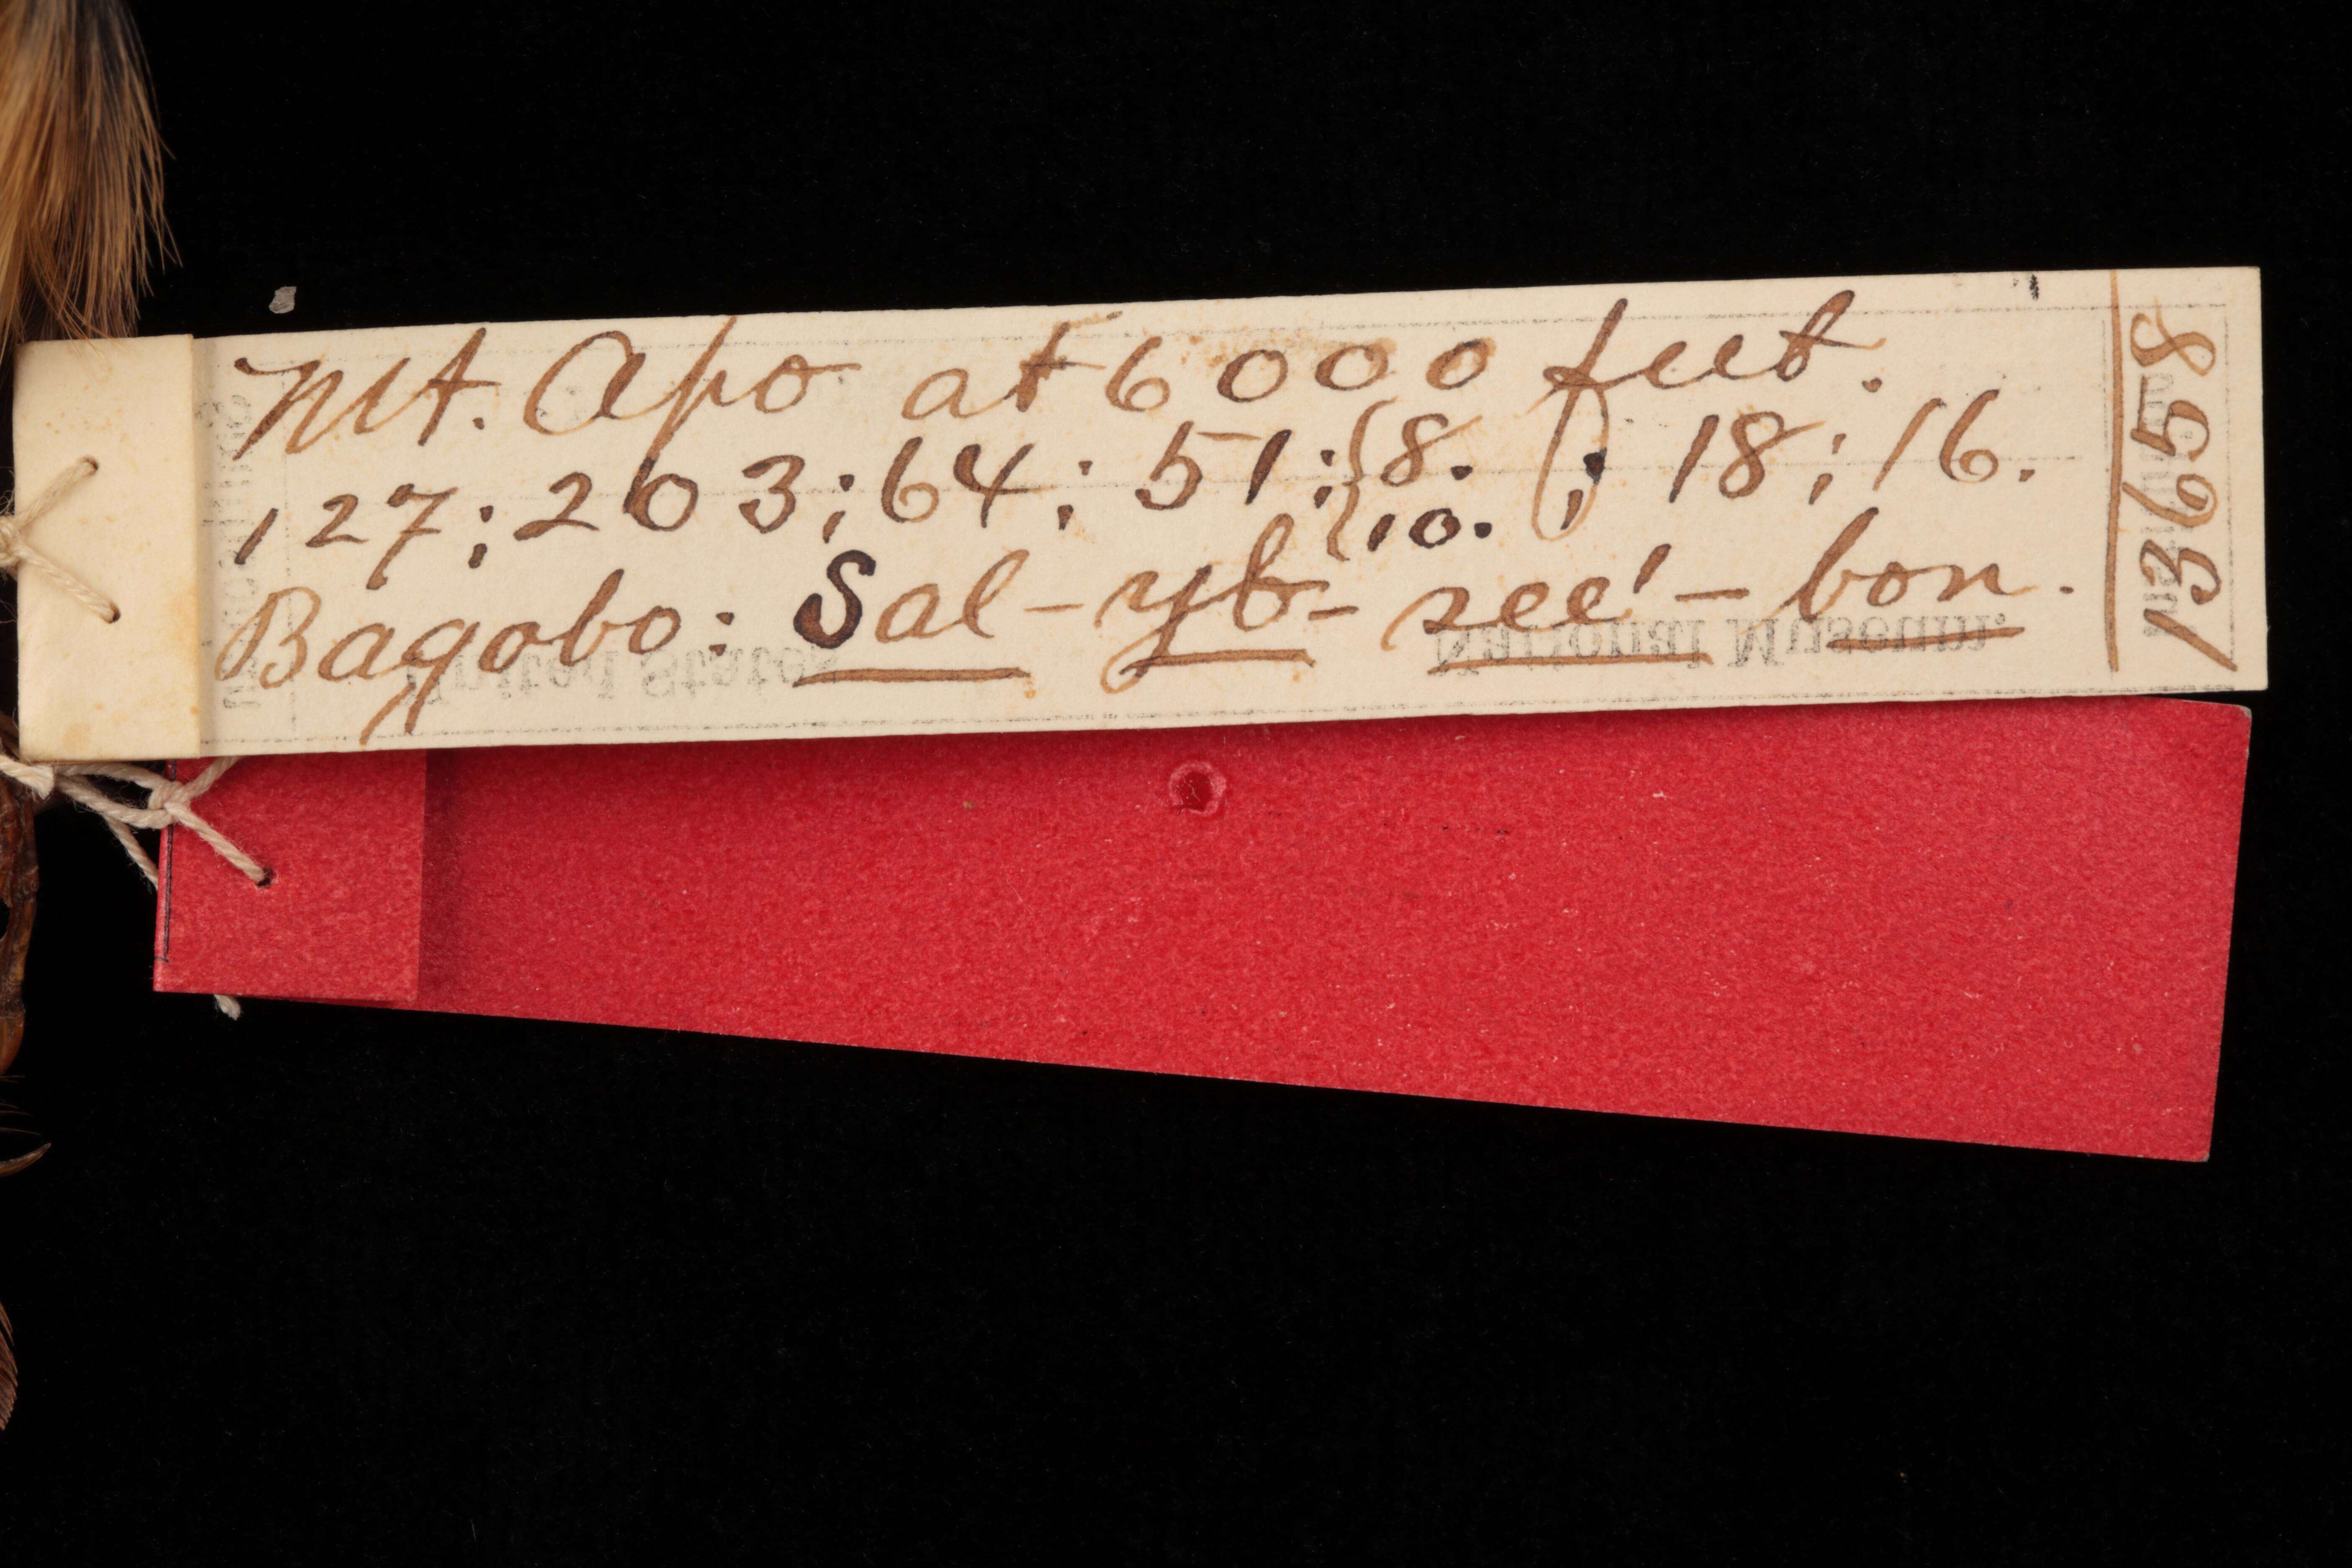 Mt. Apo at 6000 feet.
127; 203; 64; 51; {8. 10.}; 18; 16.
Bagobo: Sal-yb-see'-bon.
13658
United States
National Museum.